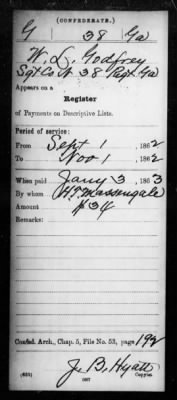 (CONFEDERATE.)
G 38 Ga
W. L. Godfrey
Sgt Co. N 38 Regt. Ga
Appears on a
Register
of Payments on Descriptive Lists.
Period of service:
From Sept 1, 1862
To Nov 1, 1862
When paid Jany 3, 1863
By whom H.T. Massengale
Amount $34
Remarks:
Confed. Arch., Chap. 5, File No. 53, page 192
J. B. Hyatt
(635) Copyist.